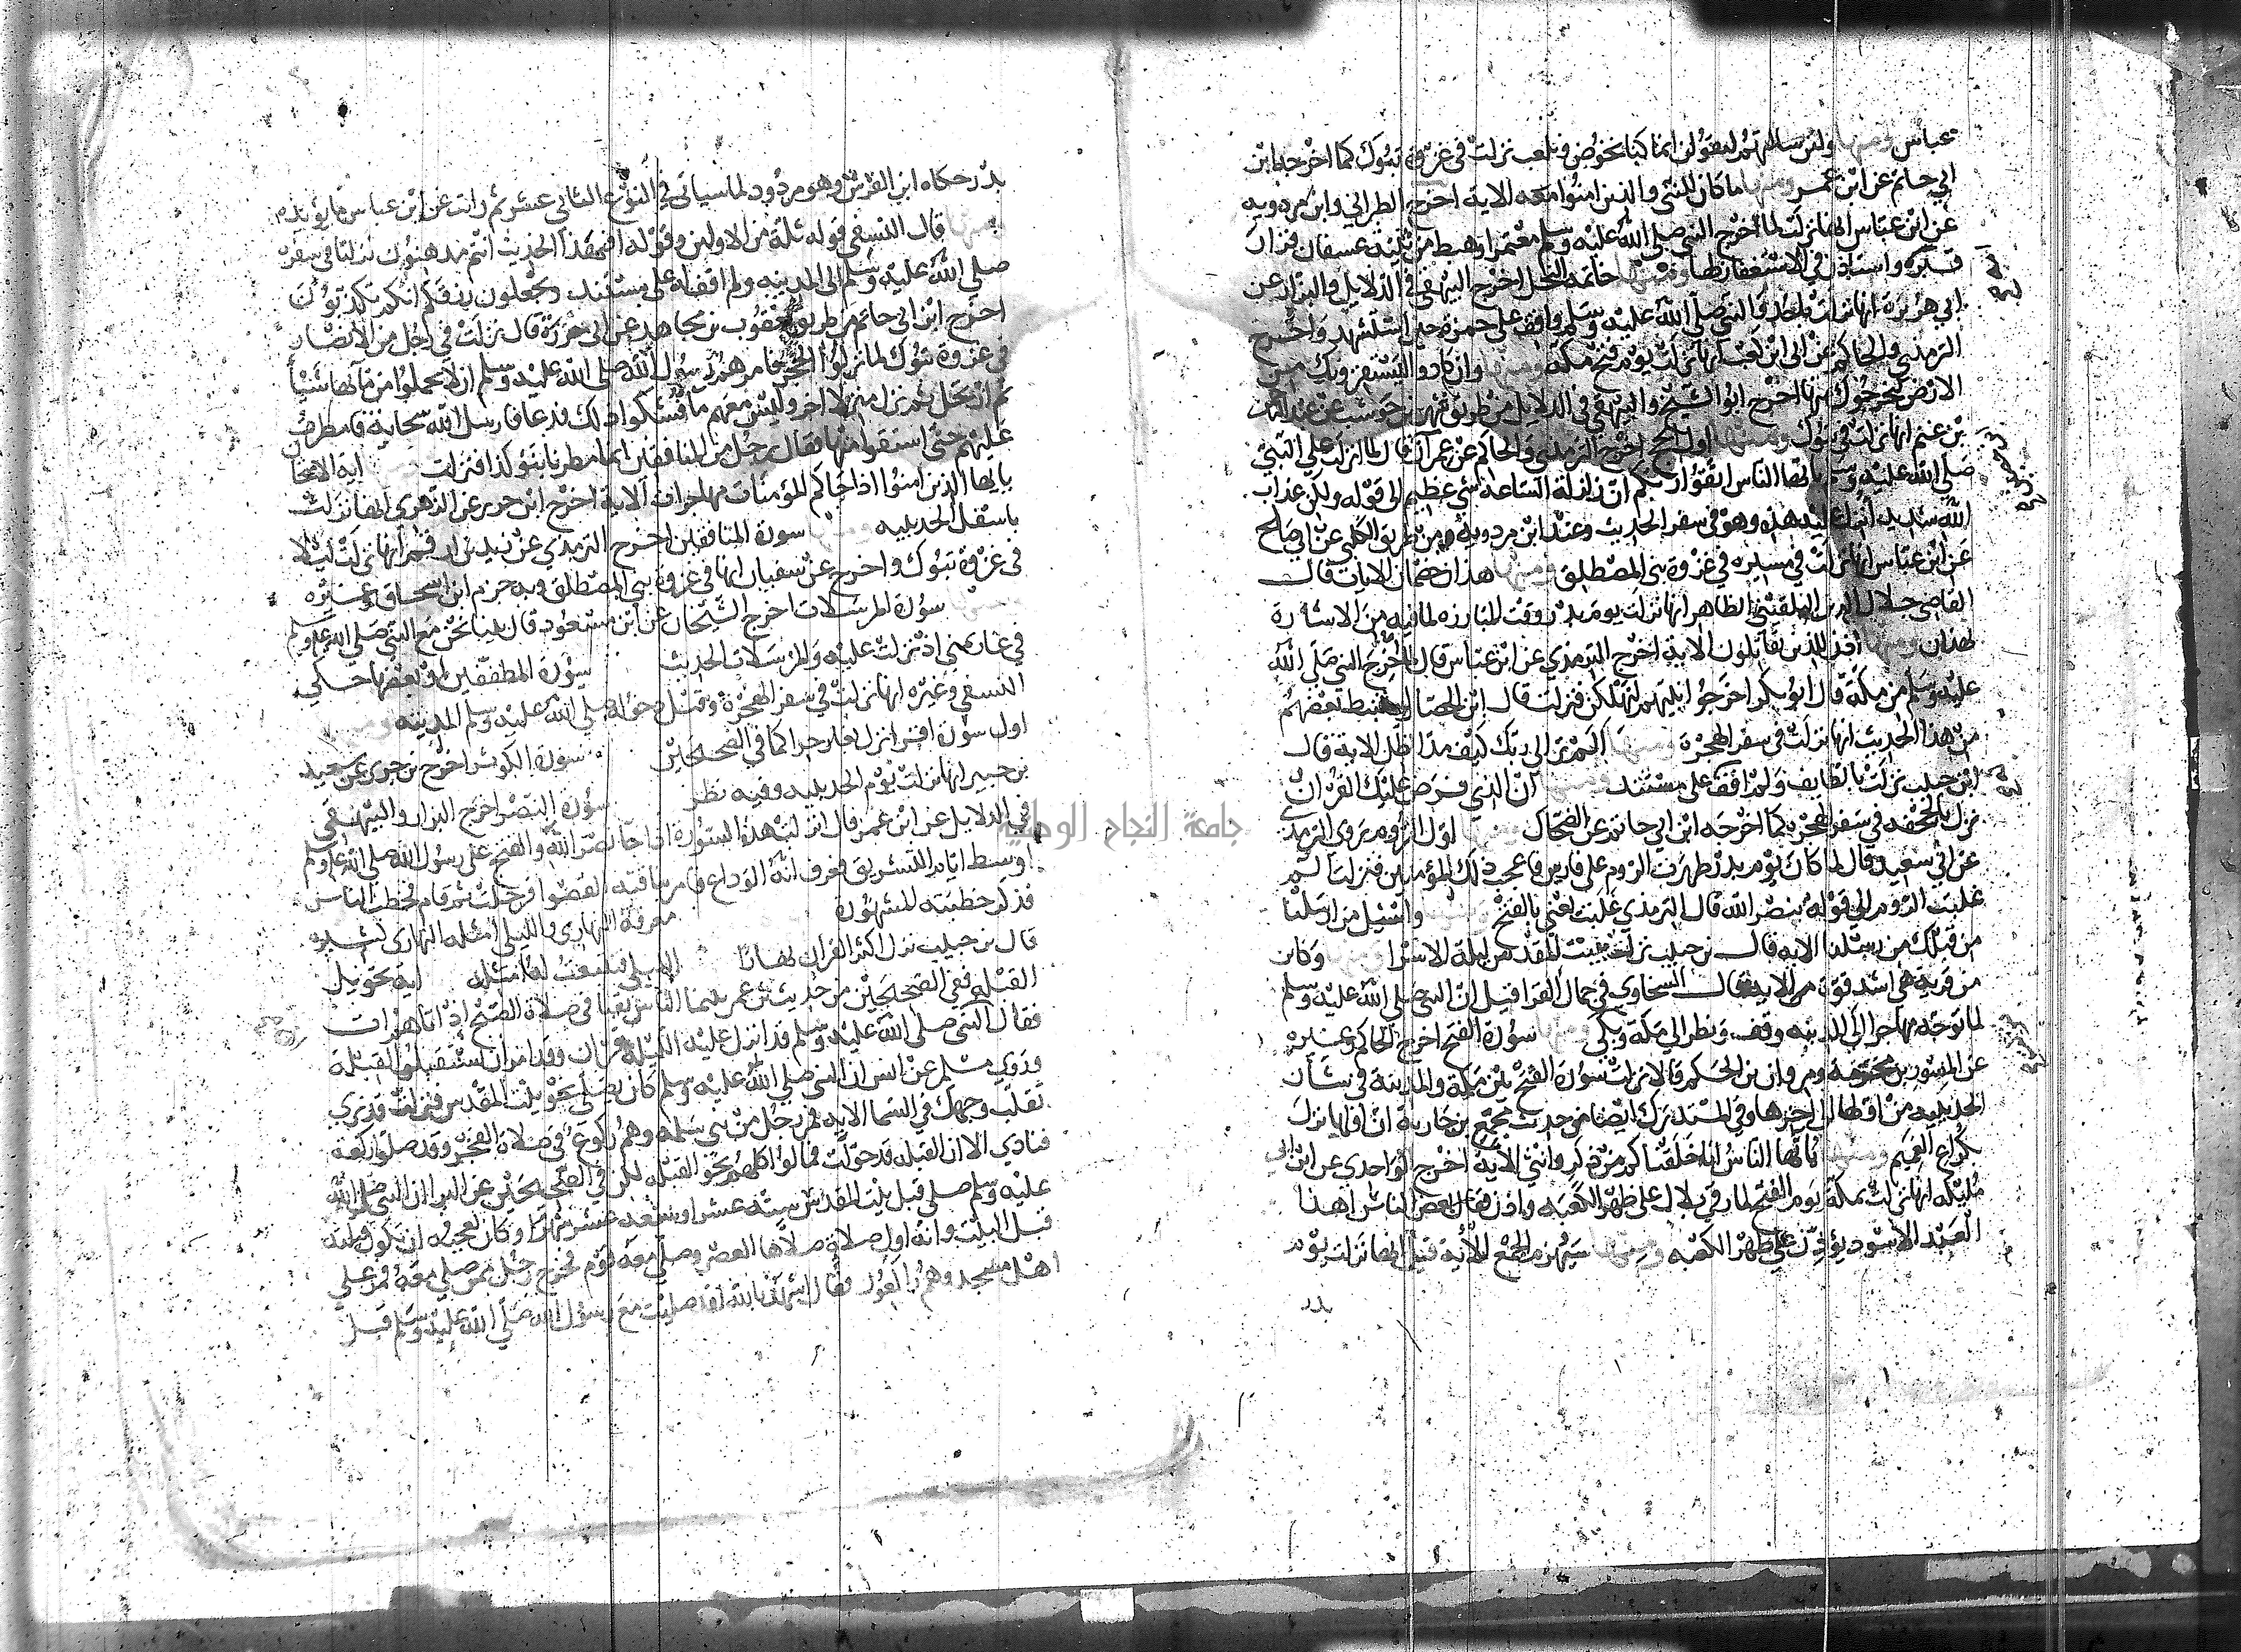 عباس ومنها ولئن سالتهم ليقولن انما كنا نخوض ونلعب نزلت في غزوة تبوك كما اخرجه ابن
ابي حاتم عن ابن عمر ومنها ما كان للنبي والذين امنوا معه الاية اخرج الطبراني وابن مردويه
عن ابن عباس انها نزلت لما خرج النبي صلى الله عليه وسلم معتمرا وهبط من ثنية عسفان فزار
قبر امه واستاذن في الاستغفار لها ومنها خاتمة النحل اخرج البيهقي في الدلايل والبزار عن
ابي هريرة انها نزلت باحد والنبي صلى الله عليه وسلم واقف على حمزة حين استشهد واخرج
الترمذي والحاكم عن ابي ابن كعب انها نزلت يوم فتح مكة ومنها وان كادوا ليستفزونك من
الارض ليخرجوك منها اخرج ابو الشيخ والبيهقي في الدلايل من طريق شهر بن حوشب عن عبد الرحمن
بن غنم انها نزلت في تبوك ومنها اول الحج اخرج الترمذي والحاكم عن عمران قال لما انزلت على النبي
صلى الله عليه وسلم يا ايها الناس اتقوا ربكم ان زلزلة الساعة شي عظيم الى قوله ولكن عذاب
الله شديد انزلت عليه هذه وهو في سفر الحديث وعند ابن مردويه من طريق الكلبي عن ابي صالح
عن ابن عباس انها نزلت في مسيره في غزوة بني المصطلق ومنها هذان خصمان الايات قال
القاضي جلال الدين البلقيني الظاهر انها نزلت يوم بدر وقت المبارزه لما فيه من الاشارة
بهذان ومنها اذن للذين يقاتلون الاية اخرج الترمذي عن ابن عباس قال لما اخرج النبي صلى الله
عليه وسلم من مكة قال ابو بكر اخرجوا نبيهم ليهلكن فنزلت قال ابن الحصار استنبط بعضهم
من هذا الحديث انها نزلت في سفر الهجرة ومنها الم تر الى ربك كيف مد الظل الاية قال
ابن حبيب نزلت بالطايف ولم اقف على مستند ومنها ان الذي فرض عليك القران
نزل بالجحفه في سفر الهجره كما اخرجه ابن ابي حاتم عن الضحاك ومنها اول الروم روى الترمذي
عن ابي سعيد قال لما كان يوم بدر ظهرت الروم على فارس فاعجب ذلك المؤمنين فنزلت الم
غلبت الروم الى قوله بنصر الله قال الترمذي غلبت يعني بالفتح ومنها واسئل من ارسلنا
من قبلك من رسلنا الايه قال بن حبيب نزلت ببيت المقدس ليلة الاسرا ومنها وكاين
من قرية هي اشد قوة من الاية قال السخاوي في جمال القرا قيل ان النبي صلى الله عليه وسلم
لما توجه مهاجرا الى المدينه وقف ونظر الى مكة وبكى ومنها سورة الفتح اخرج الحاكم وغيره
عن المسور بن مخرمة ومروان بن الحكم قالا نزلت سورة الفتح بين مكة والمدينة في شان
الحديبيه من اولها الى اخرها وفي المستدرك ايضا من حديث مجمع بن جارية ان اولها نزل
بكراع الغميم ومنها يا ايها الناس انا خلقناكم من ذكر وانثى الاية اخرج الواحدي عن ابن ابي
مليكه انها نزلت بمكة يوم الفتح لما رقي بلال على ظهر الكعبه واذن فقال بعض الناس اهذا
العبد الاسود يؤذن على ظهر الكعبه ومنها سيهزم الجمع الاية قيل انها نزلت يوم
بدر
بدر حكاه ابن الفرس وهو مردود لما سياتي في النوع الثاني عشر ثم رايت عن ابن عباس ما يؤيده
ومنها قال النسفي قوله ثلة من الاولين وقوله افبهذا الحديث انتم مدهنون نزلتا في سفره
صلى الله عليه وسلم الى المدينه ولم اقف له على مستند وتجعلون رزقكم انكم تكذبون
اخرج ابن ابي حاتم من طريق يعقوب بن مجاهد عن ابي حزرة قال نزلت في رجل من الانصار
في غزوة تبوك لما نزلوا الحجر فامرهم رسول الله صلى الله عليه وسلم ان لا يحملوا من مائها شيئا
ثم ارتحل ثم نزل منزلا اخر وليس معهم ما فشكوا ذلك فدعا فارسل الله سحابة فامطرت
عليهم حتى استقوا منها فقال رجل من المنافقين انما مطرنا بنوء كذا فنزلت اية الامتحان
يا ايها الذين امنوا اذا جاكم المؤمنات مهاجرات الاية اخرج ابن جرير عن الزهري انها نزلت
باسفل الحديبيه ومنها سورة المنافقين اخرج الترمذي عن زيد بن ارقم انها نزلت ليلا
في غزوة تبوك واخرج عن سفيان انها في غزوة بني المصطلق وبه جزم ابن اسحاق وغيره
سورة المرسلات اخرج الشيخان عن ابن مسعود قال بينما نحن مع النبي صلى الله عليه وسلم
في غار بمنى اذ نزلت عليه والمرسلات الحديث سورة المطففين او بعضها حكى
النسفي وغيره انها نزلت في سفر الهجرة وقبل دخوله صلى الله عليه وسلم المدينه ومنها
اول سورة اقرا نزل بغار حرا كما في الصحيحين سورة الكوثر اخرج بن جرير عن سعيد
بن جبير انها نزلت يوم الحديبيه وفيه نظر سورة النصر اخرج البزار والبيهقي
في الدلايل عن ابن عمر قال انزلت هذه السورة اذا جا نصر الله والفتح على رسول الله صلى الله عليه وسلم
اوسط ايام التشريق فعرف انه الوداع فامر بناقته القصوا فرحلت ثم قام فخطب الناس
فذكر خطبته المشهورة معرفة النهاري والليلي امثلة النهاري كثيره
قال بن حبيب نزل اكثر القران نهارا الليلي فتتبعت له امثله اية تحويل
القبله ففي الصحيحين من حديث بن عمر بينما الناس بقبا في صلاة الصبح اذ اتاهم ات
فقال النبي صلى الله عليه وسلم قد انزل عليه الليلة قران وقد امر ان يستقبل القبلة
وروى مسلم عن انس ان النبي صلى الله عليه وسلم كان يصلي نحو بيت المقدس فنزلت قد نرى
تقلب وجهك في السما الايه فمر رجل من بني سلمه وهم ركوع في صلاة الفجر وقد صلوا ركعة
فنادى الا ان القبلة قد حولت فمالوا كلهم نحو القبله لكن في الصحيحين عن البرا ان النبي صلى الله
عليه وسلم صلى قبل بيت المقدس ستة عشر او سبعة عشر شهرا وكان يعجبه ان تكون قبلته
قبل البيت وانه اول صلاة صلاها العصر وصلى معه قوم فخرج رجل ممن صلى معه فمر على
اهل مسجد وهم راكعون فقال اشهد بالله لقد صليت مع رسول الله صلى الله عليه وسلم قبل
جامعة النجاح الوطنية